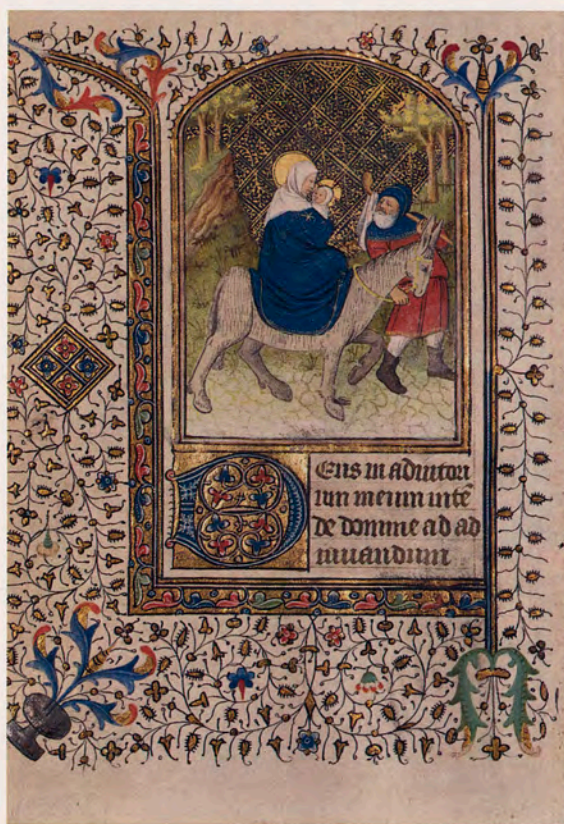 Deus in adiutori
um meum inte͂
de domine ad ad
iuuandum